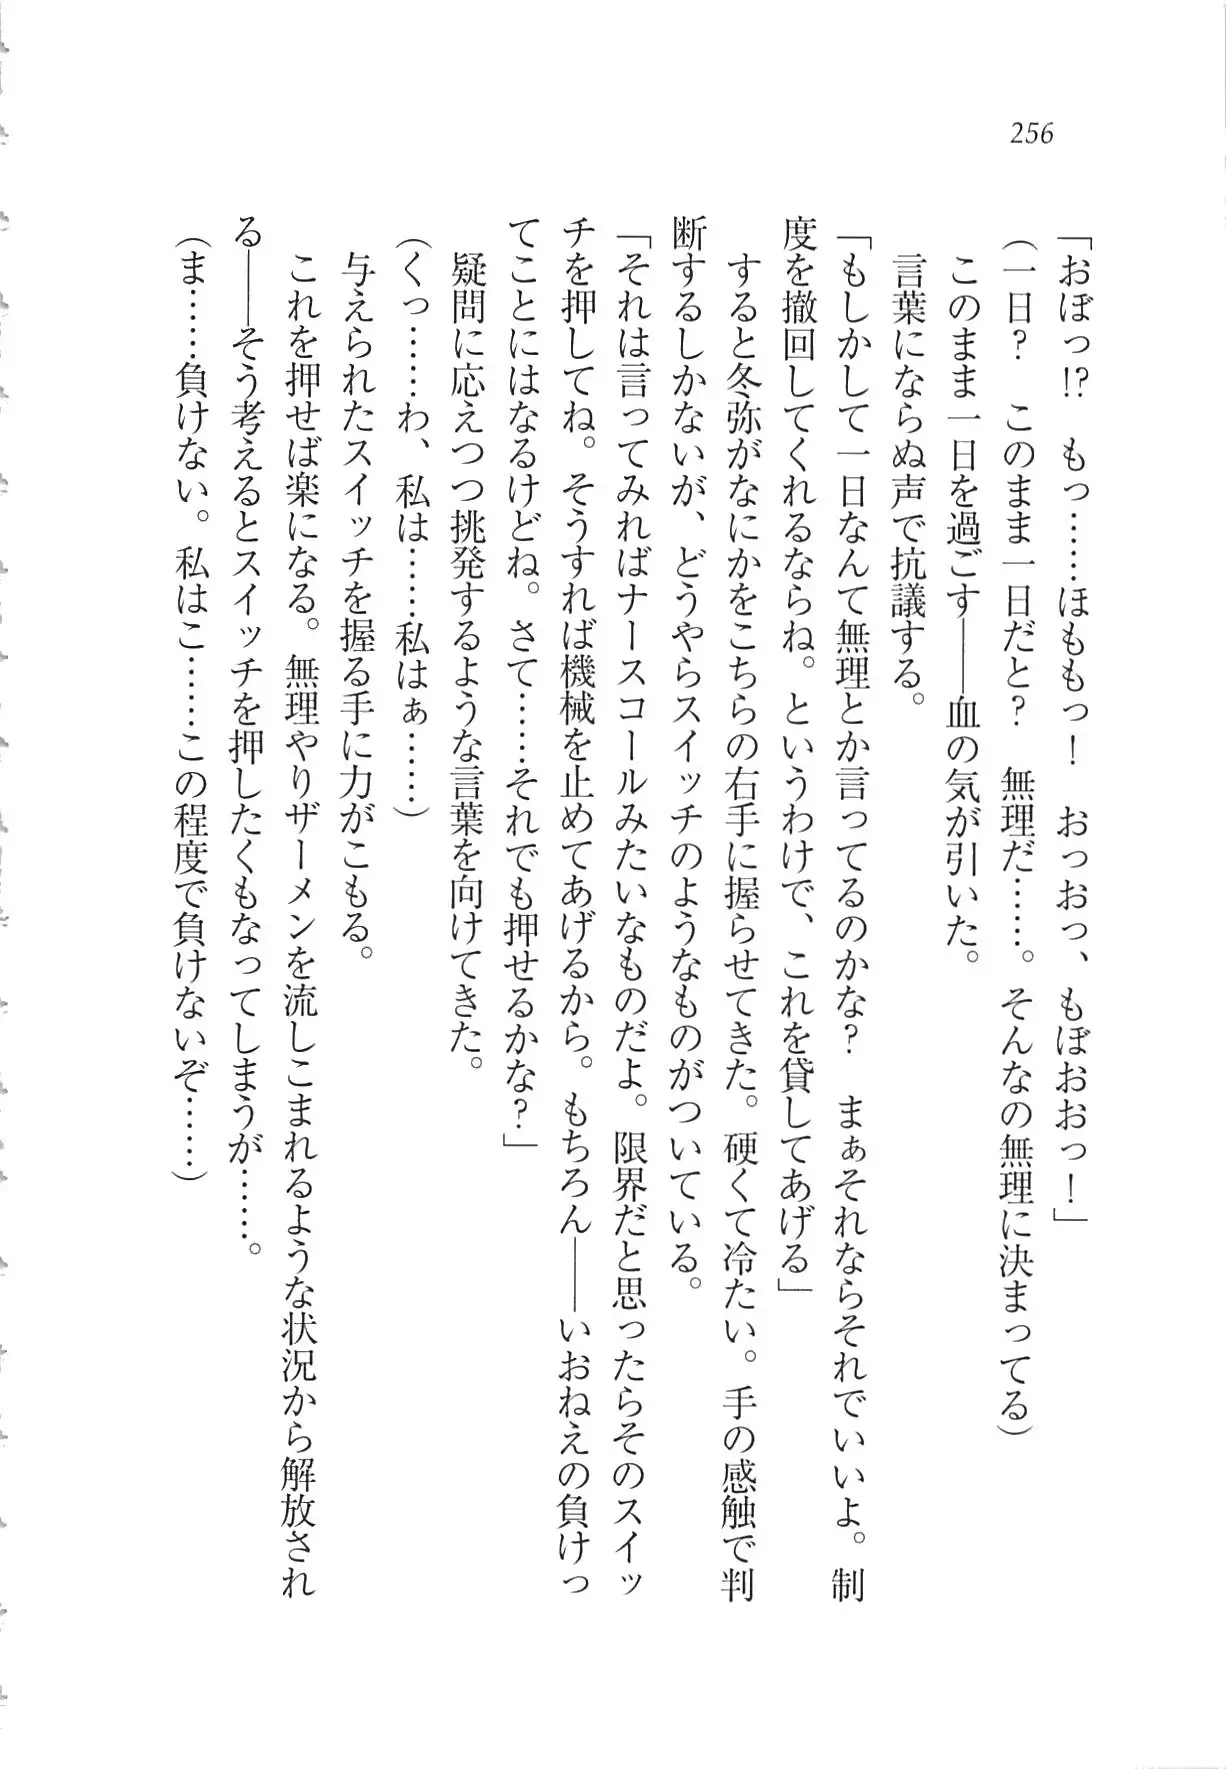 256
「おぼっ!?　もっ……ほももっ！　おっおっ、もぼおおっ！」
（一日？　このまま一日だと？　無理だ……。そんなの無理に決まってる）
　このまま一日を過ごす――血の気が引いた。
　言葉にならぬ声で抗議する。
「もしかして一日なんて無理とか言ってるのかな？　まぁそれならそれでいいよ。制
度を撤回してくれるならね。というわけで、これを貸してあげる」
　すると冬弥がなにかをこちらの右手に握らせてきた。硬くて冷たい。手の感触で判
断するしかないが、どうやらスイッチのようなものがついている。
「それは言ってみればナースコールみたいなものだよ。限界だと思ったらそのスイッ
チを押してね。そうすれば機械を止めてあげるから。もちろん――いおねえの負けっ
てことにはなるけどね。さて……それでも押せるかな？」
　疑問に応えつつ挑発するような言葉を向けてきた。
（くっ……わ、私は……私はぁ……）
　与えられたスイッチを握る手に力がこもる。
　これを押せば楽になる。無理やりザーメンを流しこまれるような状況から解放され
る――そう考えるとスイッチを押したくもなってしまうが……。
（ま……負けない。私はこ……この程度で負けないぞ……）